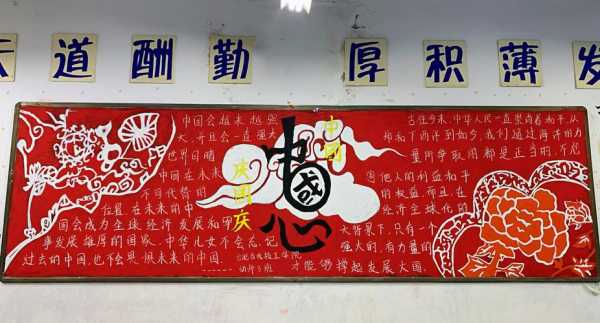 天道酬勤
厚积薄发
中国会越来越强
大,并且会一直强大
世界舞瞩
中国在未来
不可代替的
位置,在未来的中
国会成为全球经济发展和军
事发展雄厚的国家,中华儿女不会忘记
过去的中国,也不会畏惧未来的中国
中国
中国心
庆国庆
幼升5班
古往今来,中华人民一直崇尚着和平,从
郑和下西洋到如今,我们通过海洋的力
量所争取的都是正当的,不危
害他人的利益和平
的权益,而且在
经济全球化的
大背景下,只有一个
强大的,有力量的
才能够撑起发展大国.